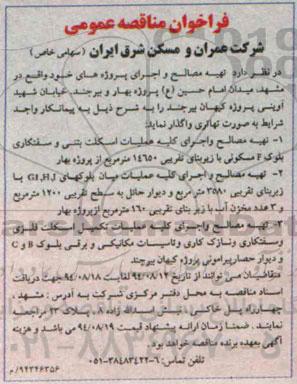 فراخوان مناقصه عمومی
شرکت عمران و مسکن شرق ایران (سهامی خاص)
در نظر دارد تهیه مصالح و اجرای پروژه های خود واقع در
مشهد، میدان امام حسین (ع) پروژه بهار و بیرجند، خیابان شهید
آوینی پروژه کیهان بیرجند را به شرح ذیل به پیمانکار واجد
شرایط به صورت تهاتری واگذار نماید:
۱- تهیه مصالح واجرای کلیه عملیات اسکلت بتنی و سفتکاری
بلوک F مسکونی با زیربنای تقریبی ۱۴۶۵۰ مترمربع از پروژه بهار
۲- تهیه مصالح و اجرای کلیه عملیات میان بلوکهای G,I,H,J با
زیربنای تقریبی ۳۵۸۰ متر مربع و دیوار حائل به سطح تقریبی ۱۲۰۰ مترمربع
و ۳ عدد مخزن آب با زیر بنای تقریبی ۱۶۰ مترمربع ازپروژه بهار
۳- تهیه مصالح واجرای کلیه عملیات تکمیل اسکلت فلزی
وسفتکاری ونازک کاری وتاسیسات مکانیکی و برقی بلوک B و C
و دیوار حصارپیرامونی پروژه کیهان بیرجند
متقاضیان می توانند از تاریخ ۹۴/۰۸/۱۲ لغایت ۹۴/۰۸/۱۸ جهت دریافت
اسناد مناقصه به محل دفتر مرکزی شرکت به آدرس : مشهد ،
چهارراه پل خاکی، نبش اسدالله زاده ۸، پلاک ۲۳ مراجعه
نمایند. ضمنا زمان ارائه پیشنهاد قیمت ۹۴/۰۸/۱۹ می باشد و هزینه
آگهی بعهده برنده مناقصه خواهد بود.
تلفن تماس: ۶-۳۸۴۸۳۴۲۲-۰۵۱
۹۴۲۴۶۳۵۶/م